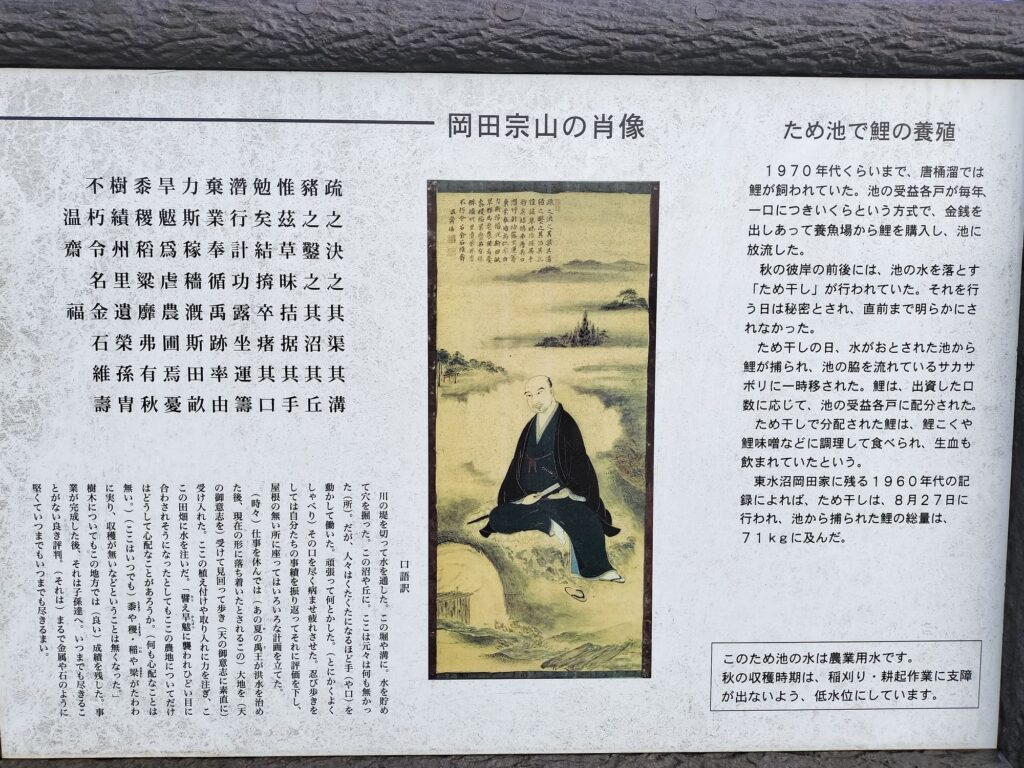 岡田宗山の肖像
疏之決之其渠其溝
豬之鑿之其沼其丘
惟茲草昧拮据其手
勉矣結揜卒瘏其口
潛行計功露坐運籌
棄業奉循禹跡率由
力斯稼穡漑斯田畝
旱魃爲虐農圃焉憂
黍稷稻粱靡弗有秋
樹績州里遺榮孫冑
不朽令名金石維壽
温齋 福
口語訳
川の堤を切って水を通した。この堀や溝に。水を貯め
て穴を掘った。この沼や丘に。ここは元々は何も無かっ
た（所）。だが、人々はくたくたになるほど手（や口）を
動かして働いた。頑張って何とかした。（とにかくよく
しゃべり）その口を尽く病ませ疲れさせた。忍び歩きを
しては自分たちの事績を振り返ってそれに評価を下し、
屋根の無い所に座ってはいろいろな計画を立てた。
（時々）仕事を休んでは（あの夏の禹王が洪水を治め
た後、現在の形に落ち着いたとされるこの）大地を（天
の御意志を）受けて見回って歩き（天の御意志に素直に）
受け入れた。ここの植え付けや取り入れに力を注ぎ、こ
この田畑に水を注いだ。「譬え旱魃に襲われひどい目に
合わされそうになったとしてもここの農地についてだけ
はどうして心配なことがあろうか。（何も心配なことは
無い。）（ここはいつでも）黍や稷・稲や梁がたわわ
に実り、収穫が無いなどということは無くなった。」
樹木についてもこの地方では（良い）成績を残した。事
業が完成した後、それは子孫達へ。いつまでも尽きるこ
とがない良き評判。（それは）まるで金属や石のように
堅くていつまでもいつまでも尽きるまい。
ため池で鯉の養殖
1970年代くらいまで、唐桶溜では
鯉が飼われていた。池の受益各戸が毎年、
一口につきいくらという方式で、金銭を
出しあって養魚場から鯉を購入し、池に
放流した。
秋の彼岸の前後には、池の水を落とす
「ため干し」が行われていた。それを行
う日は秘密とされ、直前まで明らかにさ
れなかった。
ため干しの日、水がおとされた池から
鯉が捕られ、池の脇を流れているサカサ
ボリに一時移された。鯉は、出資した口
数に応じて、池の受益各戸に配分された。
ため干しで分配された鯉は、鯉こくや
鯉味噌などに調理して食べられ、生血も
飲まれていたという。
東水沼岡田家に残る1960年代の記
録によれば、ため干しは、8月27日に
行われ、池から捕られた鯉の総量は、
71kgに及んだ。
このため池の水は農業用水です。
秋の収穫時期は、稲刈り・耕起作業に支障
が出ないよう、低水位にしています。